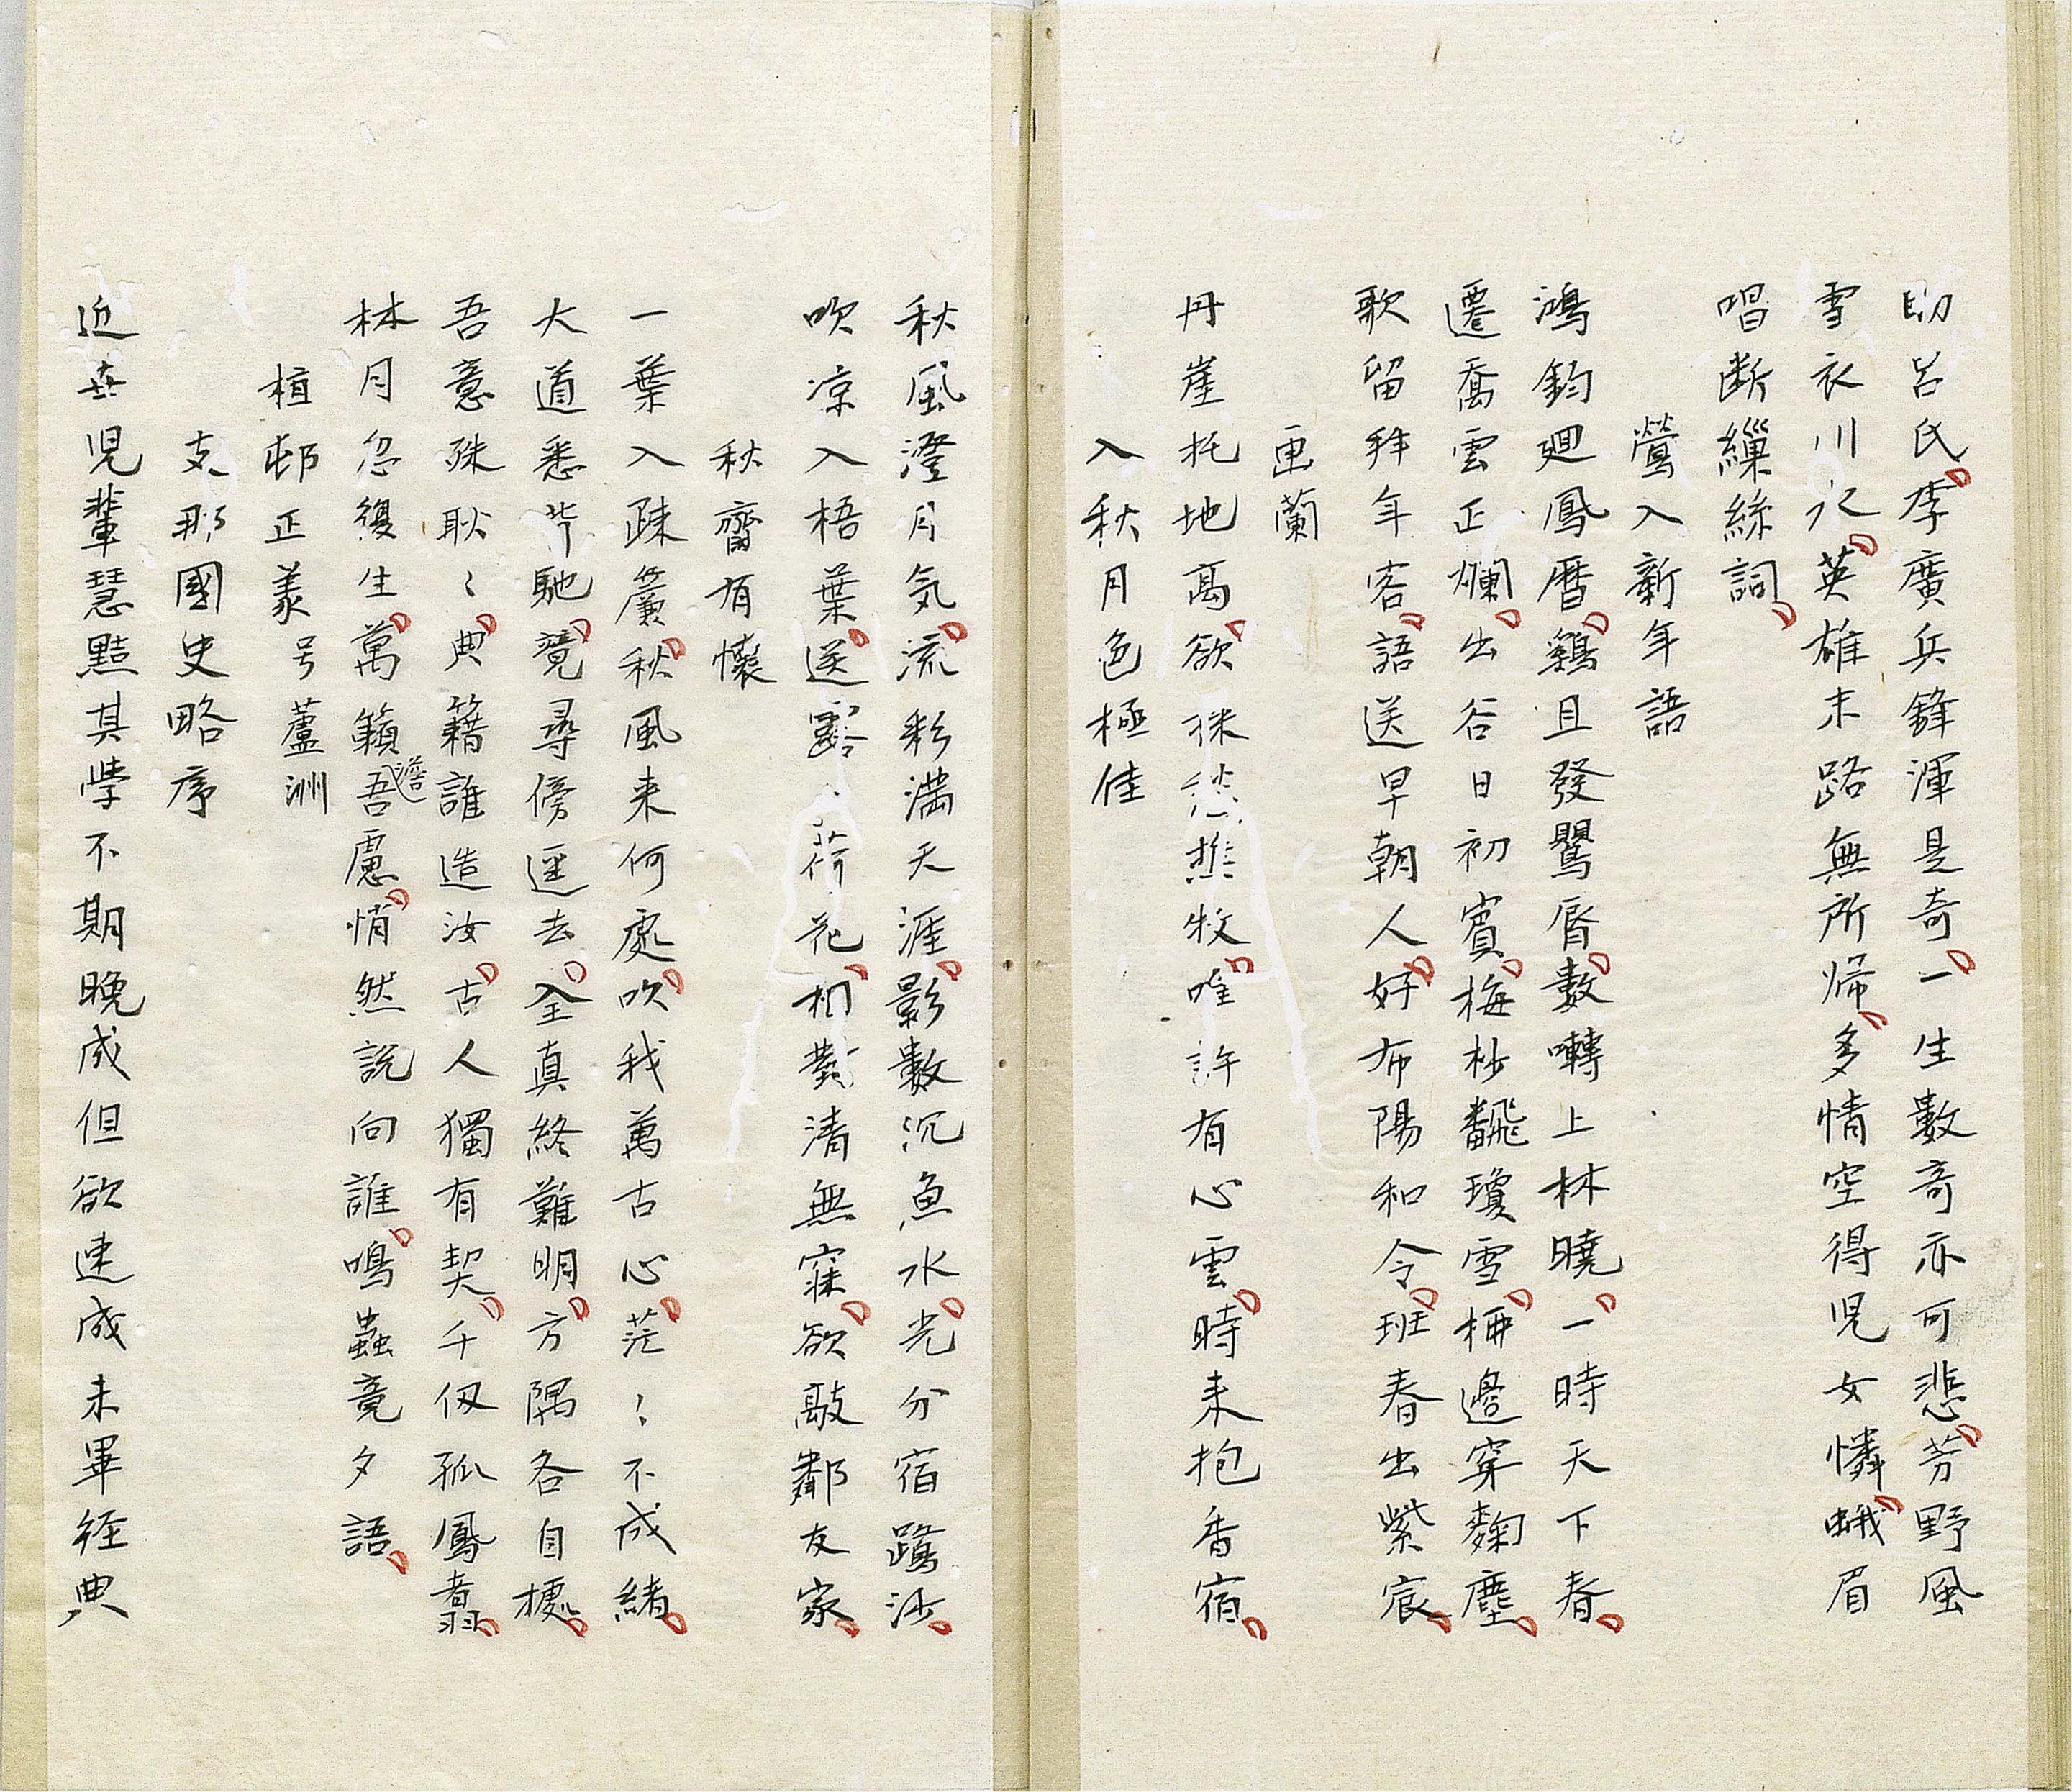 助呂氏李廣兵鋒渾是奇一生數奇亦可悲芳野風
雪衣川氷英雄末路無所帰多情空得児女憐蛾眉
唱断繅絲詞
鶯入新年語
鴻鈞廻鳳暦鷄且發鸎脣數囀上林曉一時天下春
遷喬雲正爛出谷日初賓梅杪飜瓊雪栁邉穿麹塵
歌留拜年客語送早朝人好布陽和令班春出紫宸
画蘭
丹崖托地高欲採愁樵牧唯許有心雲時来抱香宿
入秋月色極佳
秋風澄月気流彩満天涯影數沉魚水光分宿鷺沙
吹凉入梧葉送露荷花相對清無寐欲敲鄰友家
秋齋有懷
一葉入疎簾秋風来何處吹我萬古心茫〻不成緒
大道悉背馳竟尋傍逕去全真終難明方隅各自據
吾意殊耿〻典籍誰造汝古人獨有契千仭孤鳳翥
林月忽復生萬籟澹吾慮悄然説向誰鳴蟲竟夕語
植邨正義 号蘆洲
支那國史略序
近世児輩慧黠其学不期晩成但欲速成未畢経典